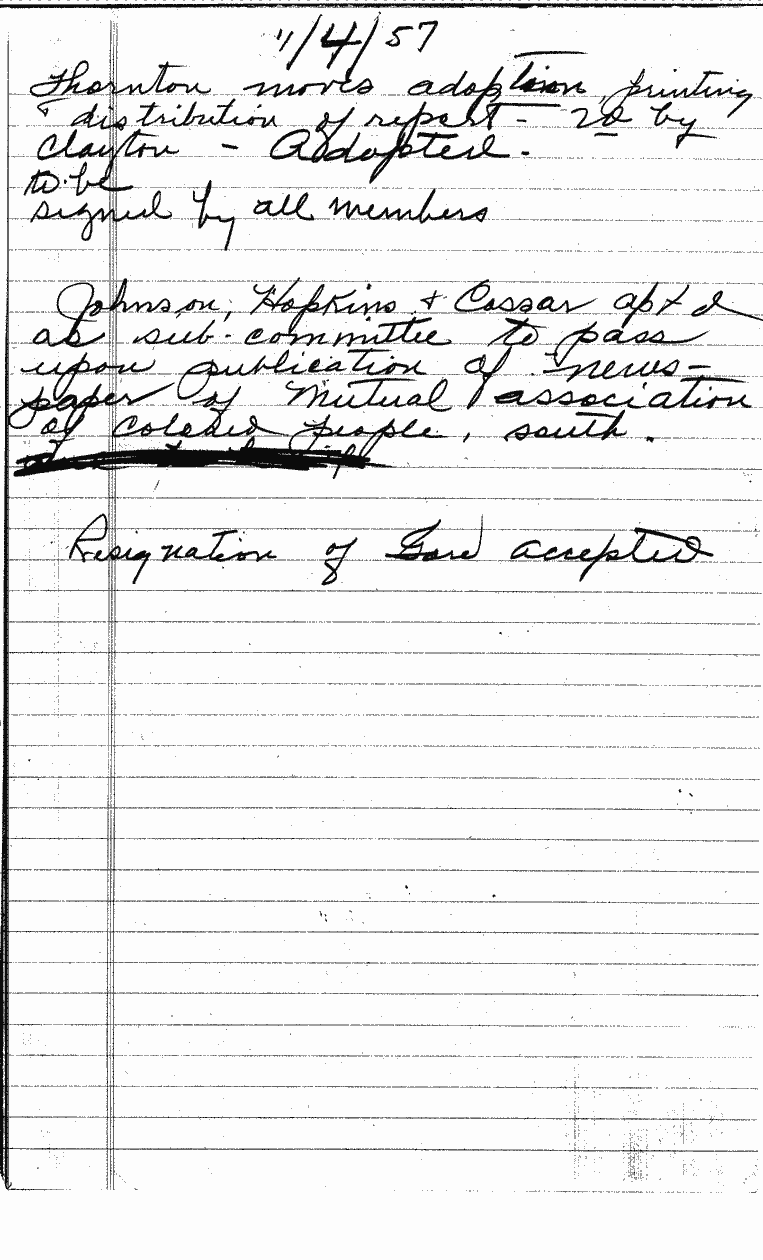 1/4/57
Thornton moves adoption, printing
& distribution of report - 2d by
Clayton - Adopted.
to be
signed by all members
Johnson, Hopkins & Cossar apt d
as sub-committee to pass
upon publication of news-
paper of Mutual association
of colored people, south.
Resignation of Gore accepted